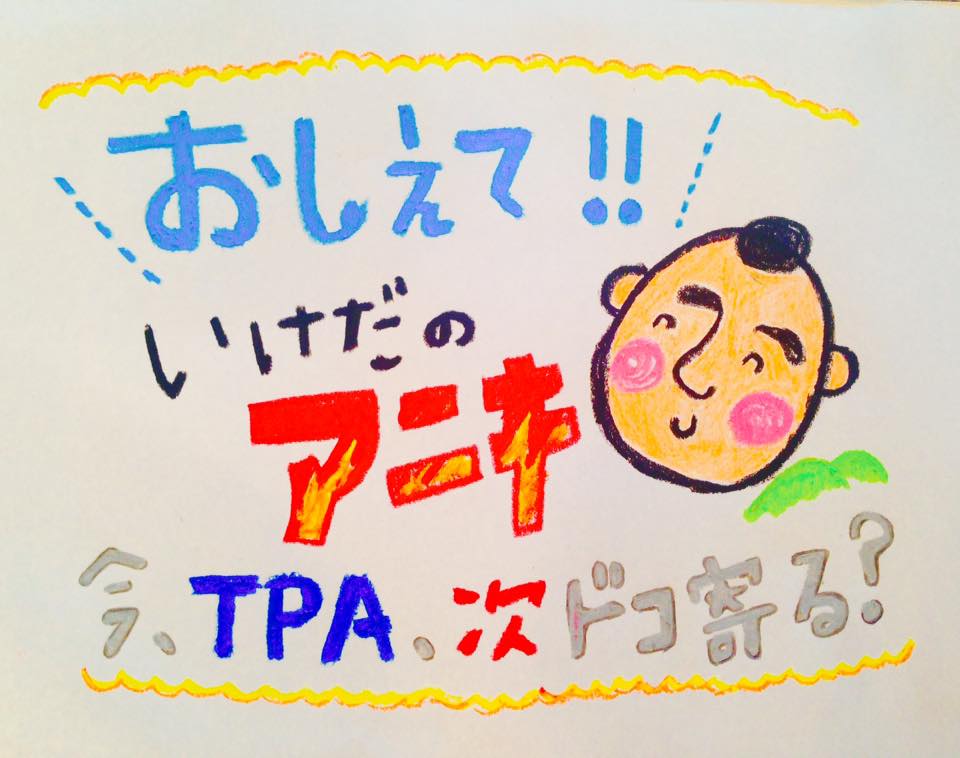 おしえて!!
いけだの
アニキ
今、TPA、次ドコ寄る?